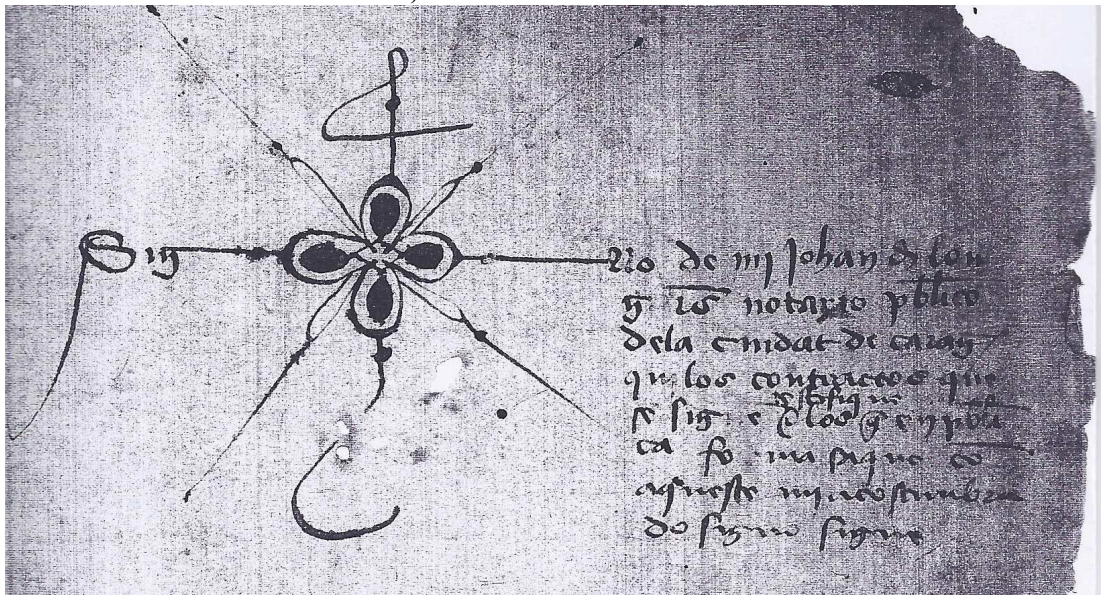 Sig No de mi Johan de
notario publico
dela ciudat de carag
qui los contractos que
se sig e los en publi
ca fo ma saque co
aqueste mi acostumbra
do signo signe